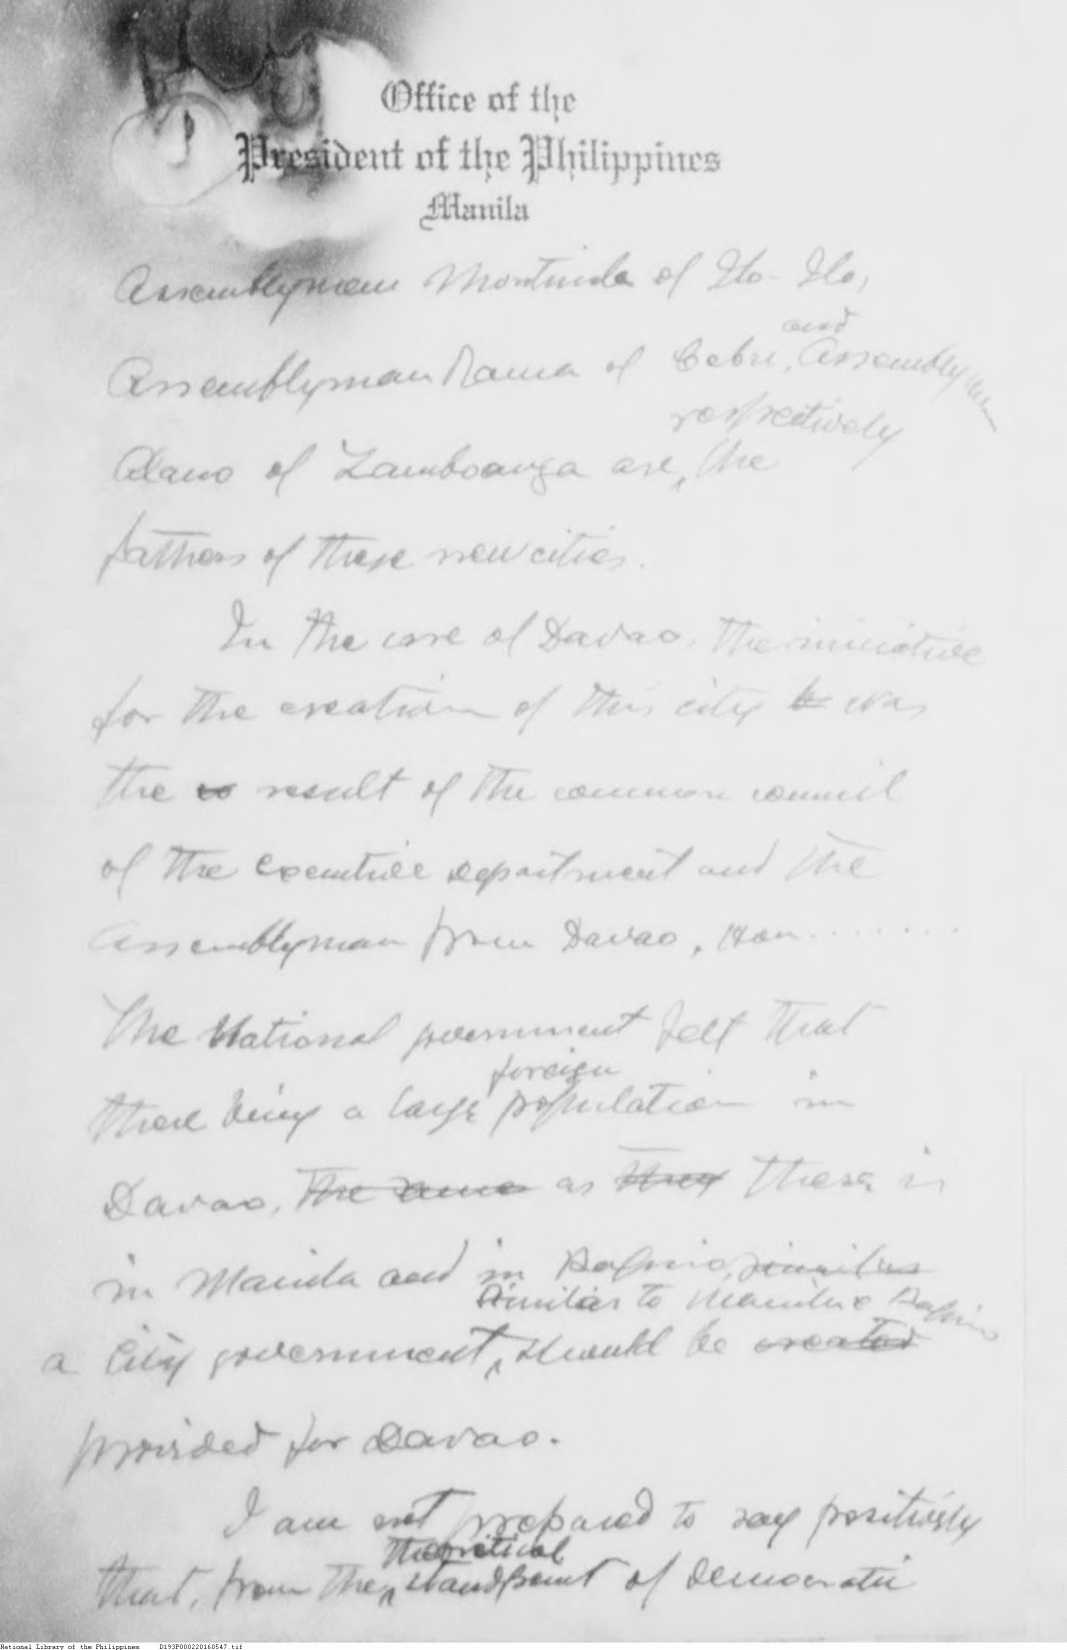 Office of the
President of the Philippines
Manila
Assemblyman Montinola of Ilo-Ilo,
and
Assemblyman Rama of Cebu, Assemblyman
respectively
Alano of Zamboanga are, the
fathers of these new cities.
In the case of Davao, the iniciative
for the creation of this city was
the result of the common council
of the executive department and the
Assemblyman from Davao, Hon.........
The National government felt that
foreign
there being a large population in
Davao, the same as they there is
in Manila and in Baguio, similar
similar to Manila & Baguio
a City government, should be created
provided for Davao.
I am not prepared to say positively
theoretical
that, from the standpoint of democratic
National Library of the Philippines D193P000220160547.tif